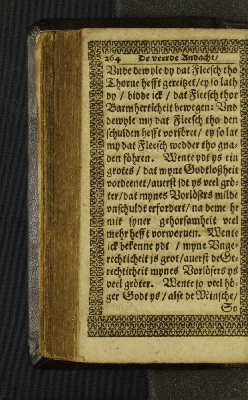 264 De veerde Andacht/
Vnde dewyle dy dat Fleesch tho
Thorne hefft gereitzet/ ey so lath
dy / bidde ick / dat Fleesch thor
Barmherticheit bewegen: Vnd
dewyle my dat Fleesch tho den
schulden hefft vorföret/ ey so lat
my dat Fleesch wedder tho gna-
den fōhren. Wente ydt ys ein
grotes / dat myne Godtloßheit
vordeenet/ auerst jdt ys veel grö-
ter/ dat mynes Vorlösers milde
vnschuldt erfordert/ na deme he
mit syner gehorsamheit veel
mehr hefft vorworuen. Wente
ick bekenne ydt / myne Vnge-
rechticheit js grot/ auerst de Ge-
rechticheit mynes Vorlösers ys
veel gröter. Wente so veel hö-
ger Godt ys / alse de Minsche/
So